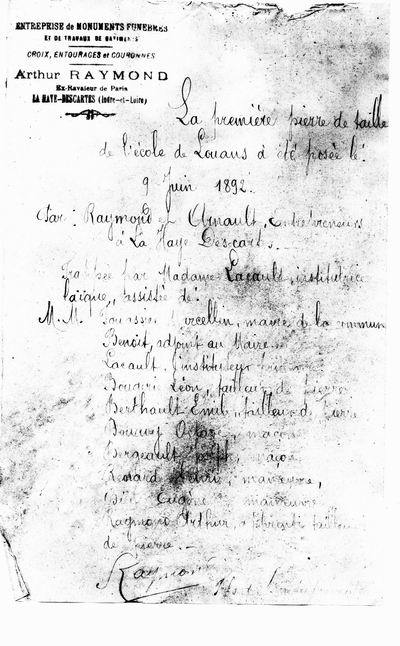 ENTREPRISE DE MONUMENTS FUNÈBRES
ET DE TRAVAUX DE BATIMENTS
CROIX, ENTOURAGES et COURONNES
Arthur RAYMOND
Ex-Ravaleur de Paris
LA HAYE-DESCARTES (Indre-et-Loire)
La première pierre de taille
de l'école de Louans a été posée le
9 Juin 1892.
Par : Raymond et Arnault, entrepreneurs
à La Haye Descartes.
Frappée par Madame Lacault, institutrice
laïque, assistée de :
M.M. maire de la commune
Benoit, adjoint au Maire
Lacault, instituteur
Léon, tailleur de pierre
Berthault Emile, tailleur de pierre
maçon
Bergeault Joseph, maçon
Renard manœuvre,
Eugène manœuvre
Raymond Arthur, tailleur
de pierre.
Raymond